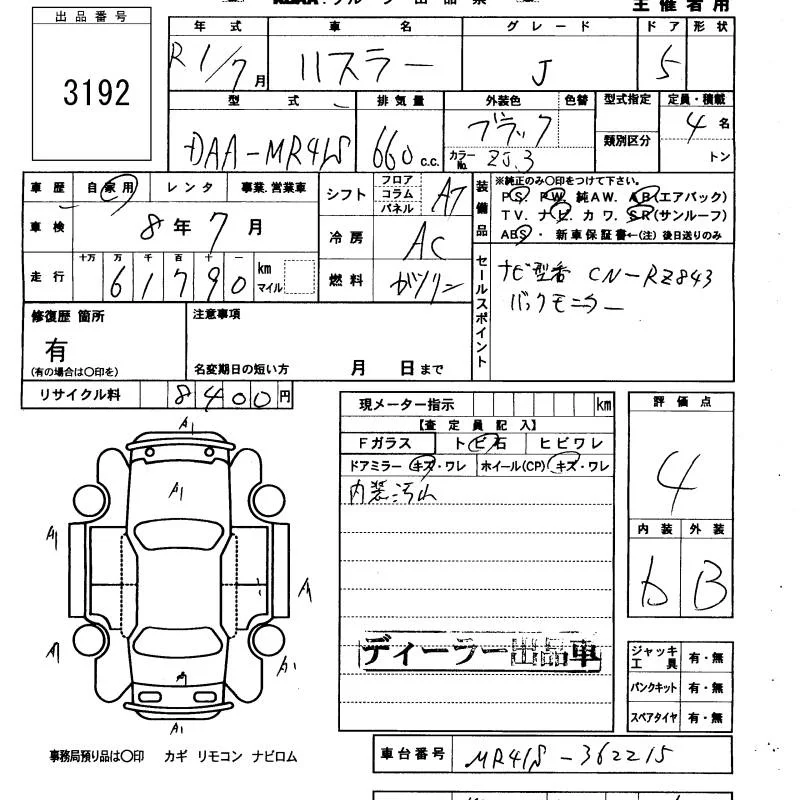 主催者用
出品番号
3192
年式 車名 グレード ドア 形状
R1/7月 ハスラー J 5
型式 排気量 外装色 色替 型式指定 定員・積載
DAA-MR41S 660c.c. ブラック 類別区分 4名
カラーNo. ZJ3 トン
車歴 自家用 レンタ 事業.営業車
シフト フロア コラム パネル AT
装備品 ※純正のみ〇印をつけて下さい。
PS. PW. 純AW. AB(エアバック)
TV. ナビ. カワ. SR(サンルーフ)
ABS ・ 新車保証書←(注) 後日送りのみ
車検 8年7月
冷房 AC
走行 十万 万 千 百 十 一
61790 km マイル
燃料 ガソリン
セールスポイント
ナビ型番 CN-RZ843
バックモニター
修復歴 箇所
有
(有の場合は〇印を)
注意事項
名変期日の短い方 月 日まで
リサイクル料 8400円
現メーター指示 km
【査定員記入】
Fガラス トビ石 ヒビワレ
ドアミラー キズ・ワレ ホイール(CP) キズ・ワレ
内装汚れ
評価点
4
内装 外装
b B
A1
A1
A1
A1
A1
A1
A1
A1
ディーラー出品車
ジャッキ工具 有・無
パンクキット 有・無
スペアタイヤ 有・無
事務局預り品は〇印 カギ リモコン ナビロム
車台番号 MR41S-362215